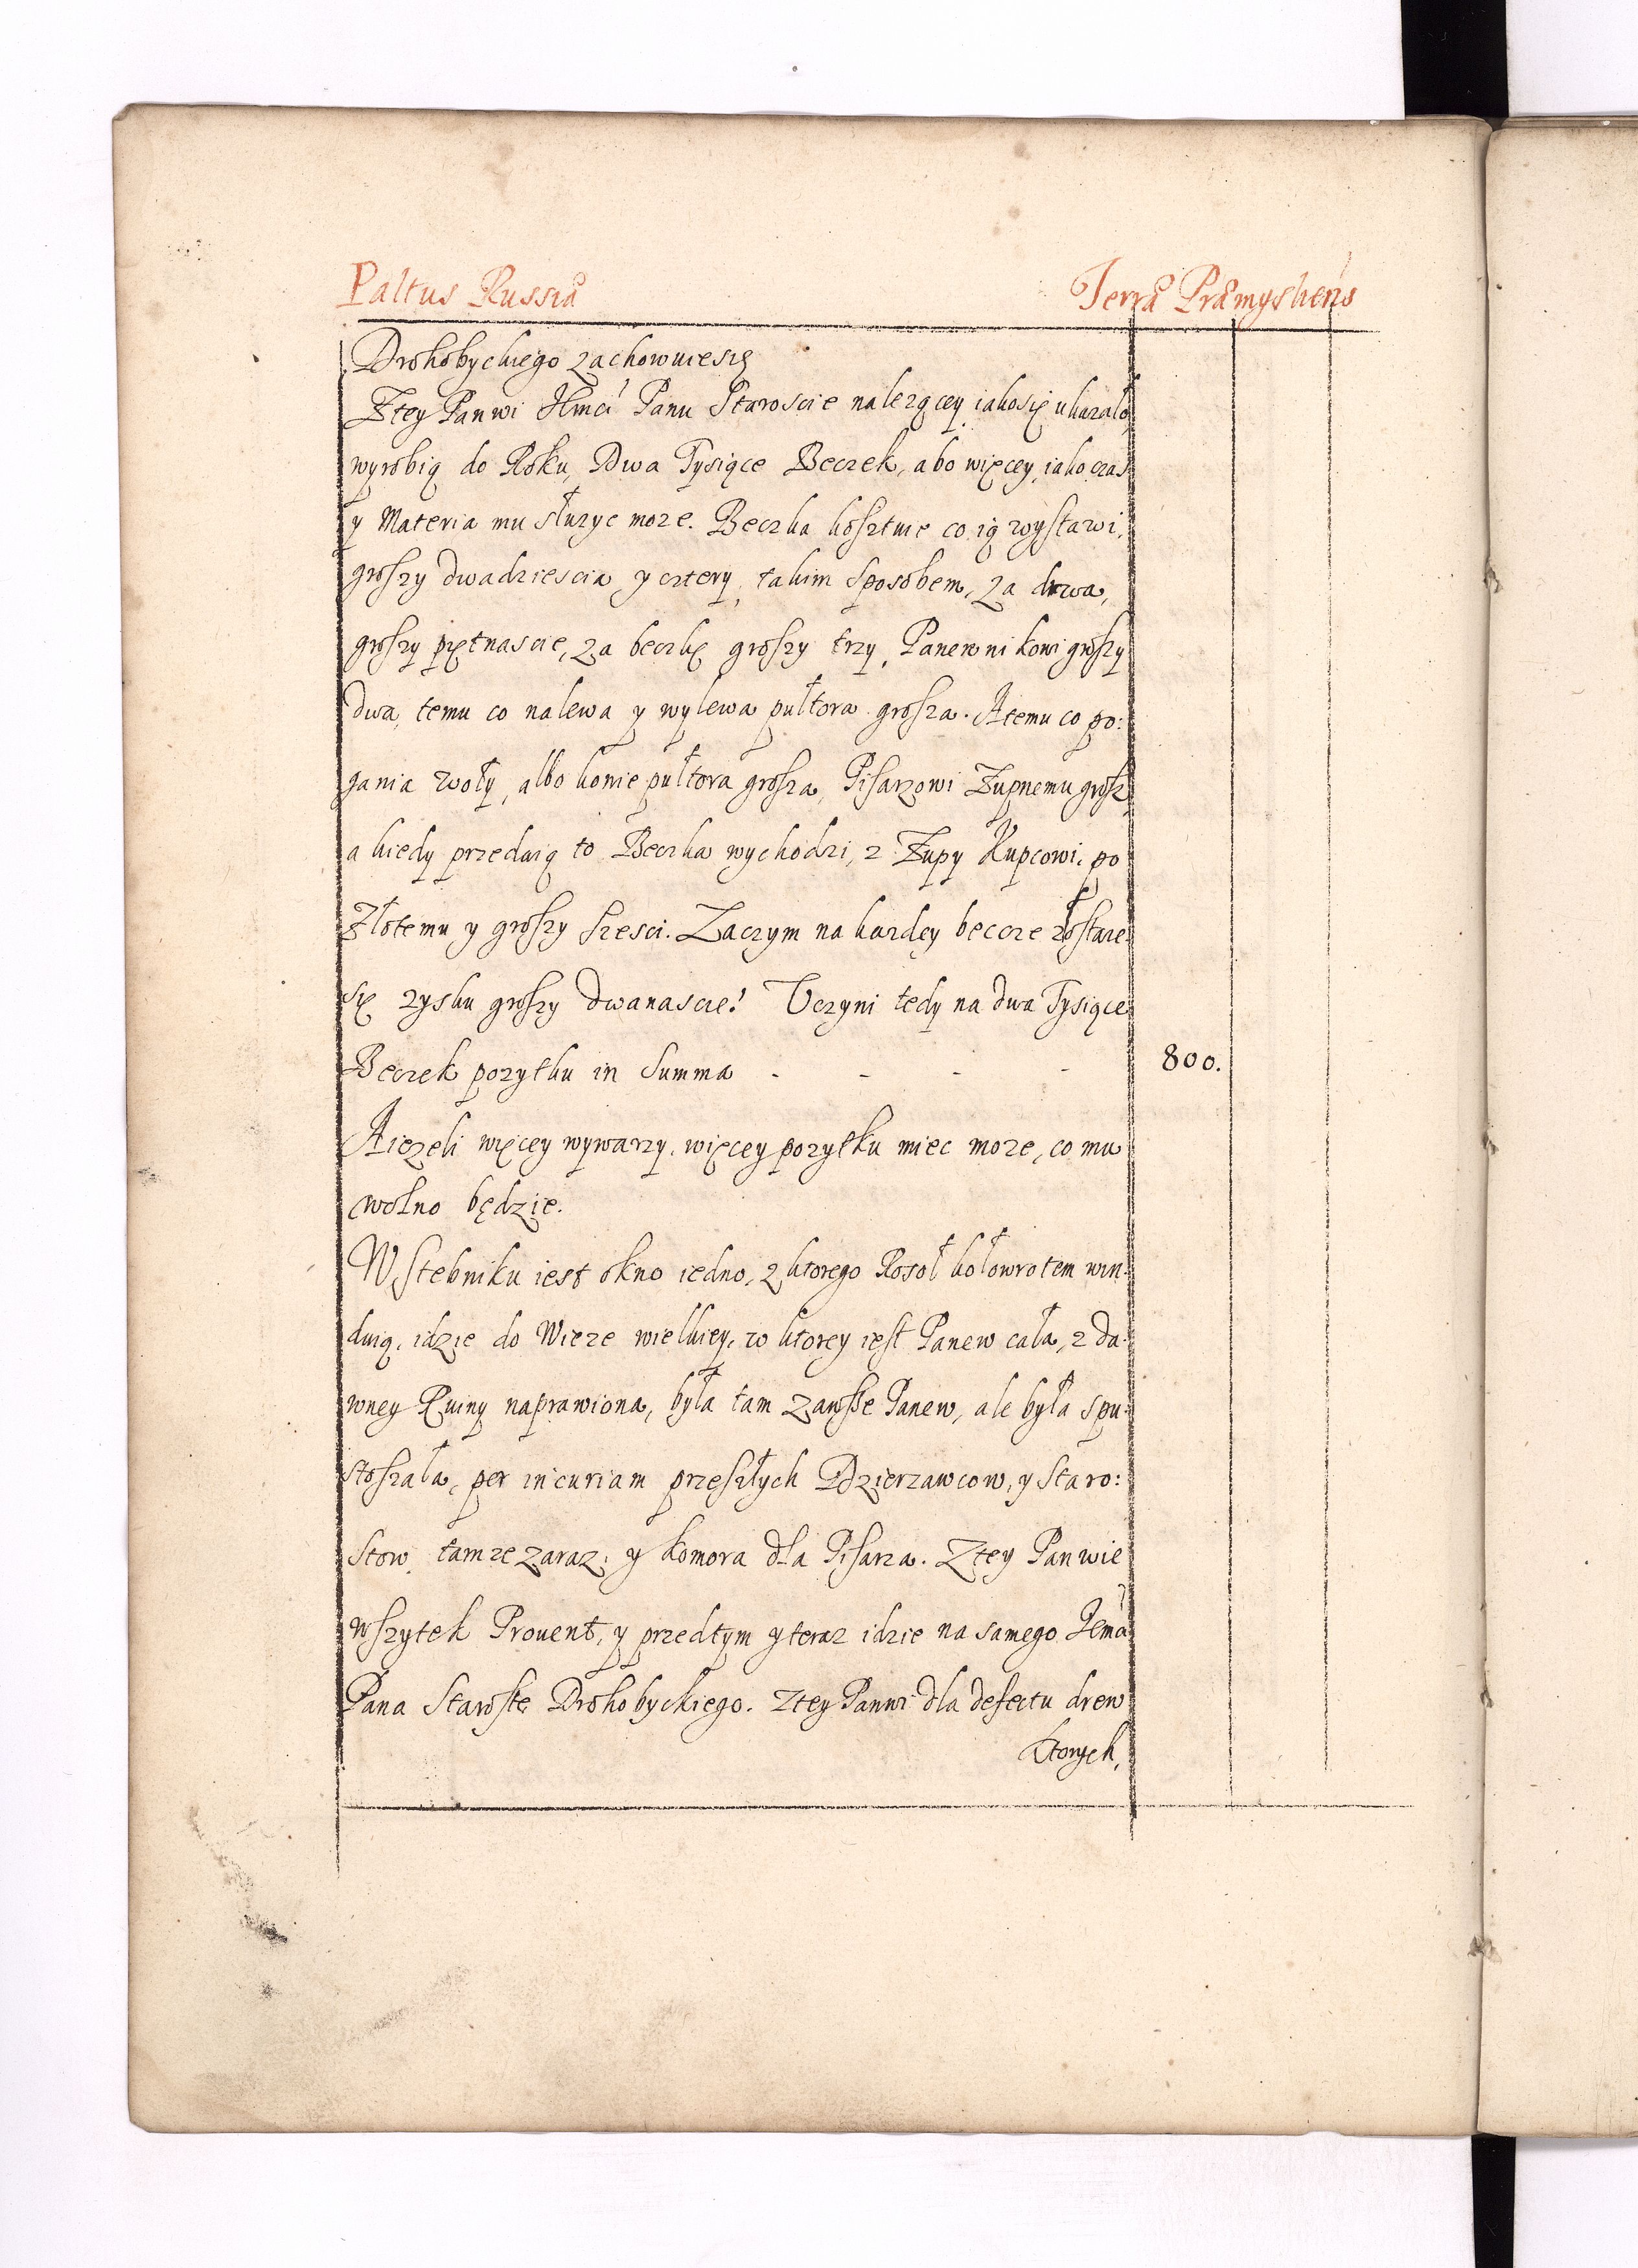 Paltus Russiæ
Terræ Præmyslien̄s
Drohobyckiego zachowuiesię
Ztey Panwi JEmci Panu Staroscie nalezącey iakosię ukazało
wyrobią do Roku, Dwa Tysiące Beczek, abo więcey, iako czas
y Materia mu słuzyc moze. Beczka kosztuie co ią wystawi,
groszy dwadziescia y cztery, takim sposobem, za drwa,
groszy piętnascie, za beczkę groszy trzy, Panewnikowi groszy
dwa, temu co nalewa y wylewa pułtora grosza. Atemu co po:
gania woły, albo konie pułtora grosza, Pisarzowi Zupnemu grosz
a kiedy przedaią to Beczka wychodzi, z Zupy Kupcowi, po
Złotemu y groszy szesci. Zaczym na kazdęy beccze zostaie
się zysku groszy dwanascie! Uczyni tedy na dwa Tysiące
Beczek pozytku in Summa - - - -
800.
Aiezeli więcey wywarzy, więcey pozytku miec moze, co mu
wolno będzie.
W Stebniku iest okno iedno, z ktorego Rosoł kołowrotem win-
duią, idzie do Wieze wielkiey, w ktorey iest Panew cała, z da-
wney Ruiny naprawiona, była tam zawsze Panew, ale była spu-
stoszała, per incuriam przeszłych Dzierzawcow, y Staro:
stow, tamze zaraz, y komora dla Pisarza. Ztey Panwie
wszytek Prouent, y przedtym y teraz idzie na samego Jemci
Pana Staroste Drohobyckiego. Ztey Panwi dla defectu drew
Ktorych,